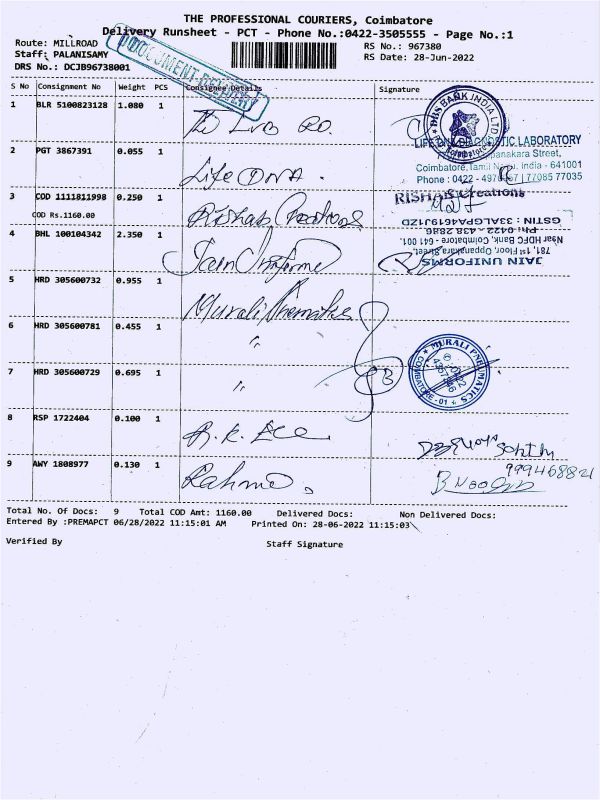 THE PROFESSIONAL COURIERS, Coimbatore
Delivery Runsheet - PCT - Phone No.:0422-3505555 - Page No.:1
Route: MILLROAD
RS No.: 967380
Staff: PALANISAMY
RS Date: 28-Jun-2022
DRS No.: DCJB96738001
DOCUMENT DELIVERY
S No Consignment No Weight PCS Consignee Details Signature
1 BLR 5100823128 1.080 1
DBS BANK INDIA LTD
Coimbatore
2 PGT 3867391 0.055 1 Life DNA.
LABORATORY
Street,
Coimbatore, Tamil India - 641001
Phone : 0422 - 77085 77035
3 COD 1111811998 0.250 1 Rishab Creations
RISHAB Creations
COD Rs.1160.00
4 BHL 100104342 2.350 1 Jain Uniforme
JAIN UNIFORMS
781, 1st Floor, Oppanakara Street,
Near HDFC Bank, Coimbatore - 641 001.
PH: 0422 - 438 2896
GSTIN : 33ALGPA4619J1ZD
5 HRD 305600732 0.955 1 Murali
6 HRD 305600781 0.455 1 "
7 HRD 305600729 0.695 1 "
MURALI PNEUMATICS
COIMBATORE - 01
8 RSP 1722404 0.100 1
9 AWY 1808977 0.130 1
Total No. Of Docs: 9 Total COD Amt: 1160.00 Delivered Docs: Non Delivered Docs:
Entered By :PREMAPCT 06/28/2022 11:15:01 AM Printed On: 28-06-2022 11:15:03
Verified By Staff Signature